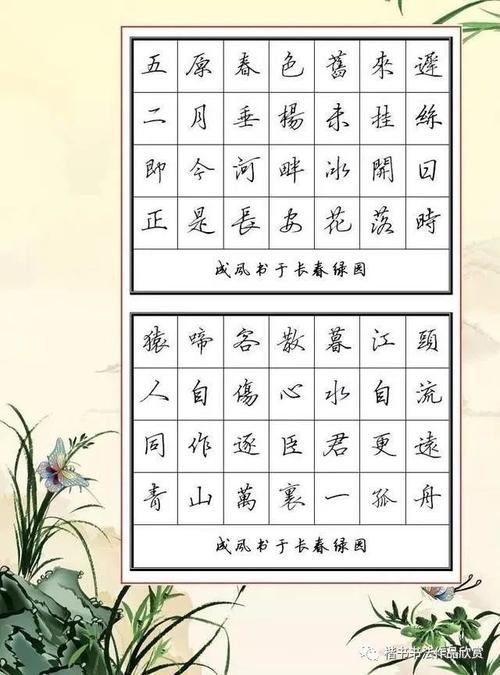 五原春色舊來遲
二月垂楊未挂絲
即今河畔冰開日
正是長安花落時
成夙书于长春绿园
猿啼客散暮江頭
人自傷心水自流
同作逐臣君更遠
青山萬裏一孤舟
成夙书于长春绿园
楷书书法作品欣赏